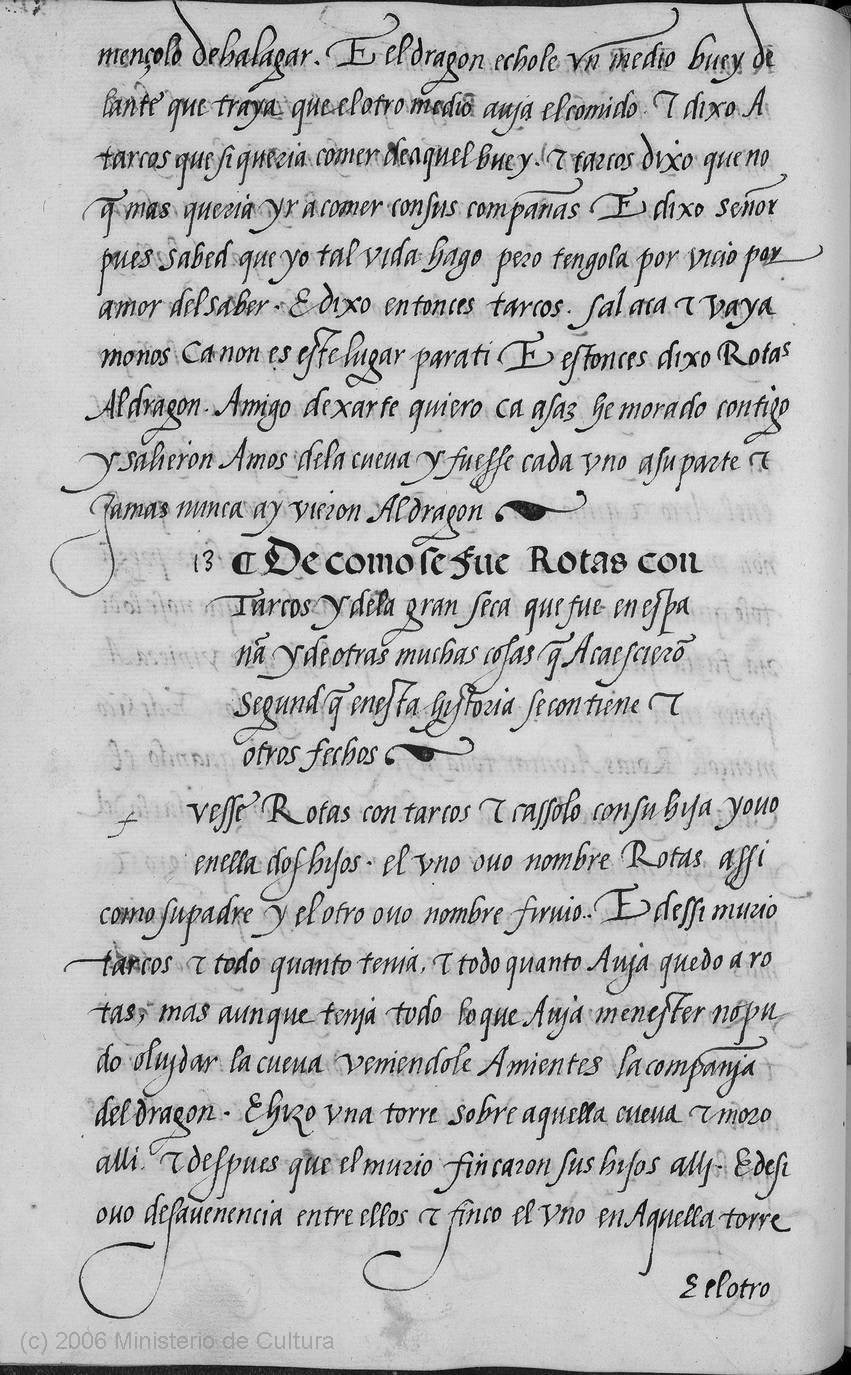 mençolo de halagar. E el dragon echole vn medio buey de
lante que traya que el otro medio auja el comido. τ dixo A
tarcos que si queria comer de aquel buey. τ tarcos dixo que no
q̃ mas queria yr a comer con sus compañas E dixo señor
pues sabed que yo tal vida hago pero tengola por vicio por
amor del saber. E dixo entonces tarcos. sal aca τ vaya
monos Ca non es este lugar para ti E estonces dixo Rotas
Al dragon. Amigo dexarte quiero ca asaz he morado contigo
y salieron Amos de la cueva y fuesse cada vno a su parte τ
Jamas nunca ay vieron Al dragon
13 ¶ De como se fue Rotas con
Tarcos y de la gran seca que fue en espa
ña y de otras muchas cosas q̃ Acaescierõ
segund q̃ en esta historia se contiene τ
otros fechos
vesse Rotas con tarcos τ cassolo con su hija y ouo
en ella dos hijos. el vno ouo nombre Rotas assi
como su padre y el otro ouo nombre firuio.. E dessi murio
tarcos τ todo quanto tenia, τ todo quanto Auja quedo a ro
tas, mas aunque tenja todo lo que Auja menester no pu
do olujdar la cueua veniendole Amientes la companja
del dragon. E hizo vna torre sobre aquella cueua τ moro
alli. τ despues que el murio fincaron sus hijos allj. E desi
ouo desauenencia entre ellos τ finco el vno en Aquella torre
E el otro
(c) 2006 Ministerio de Cultura